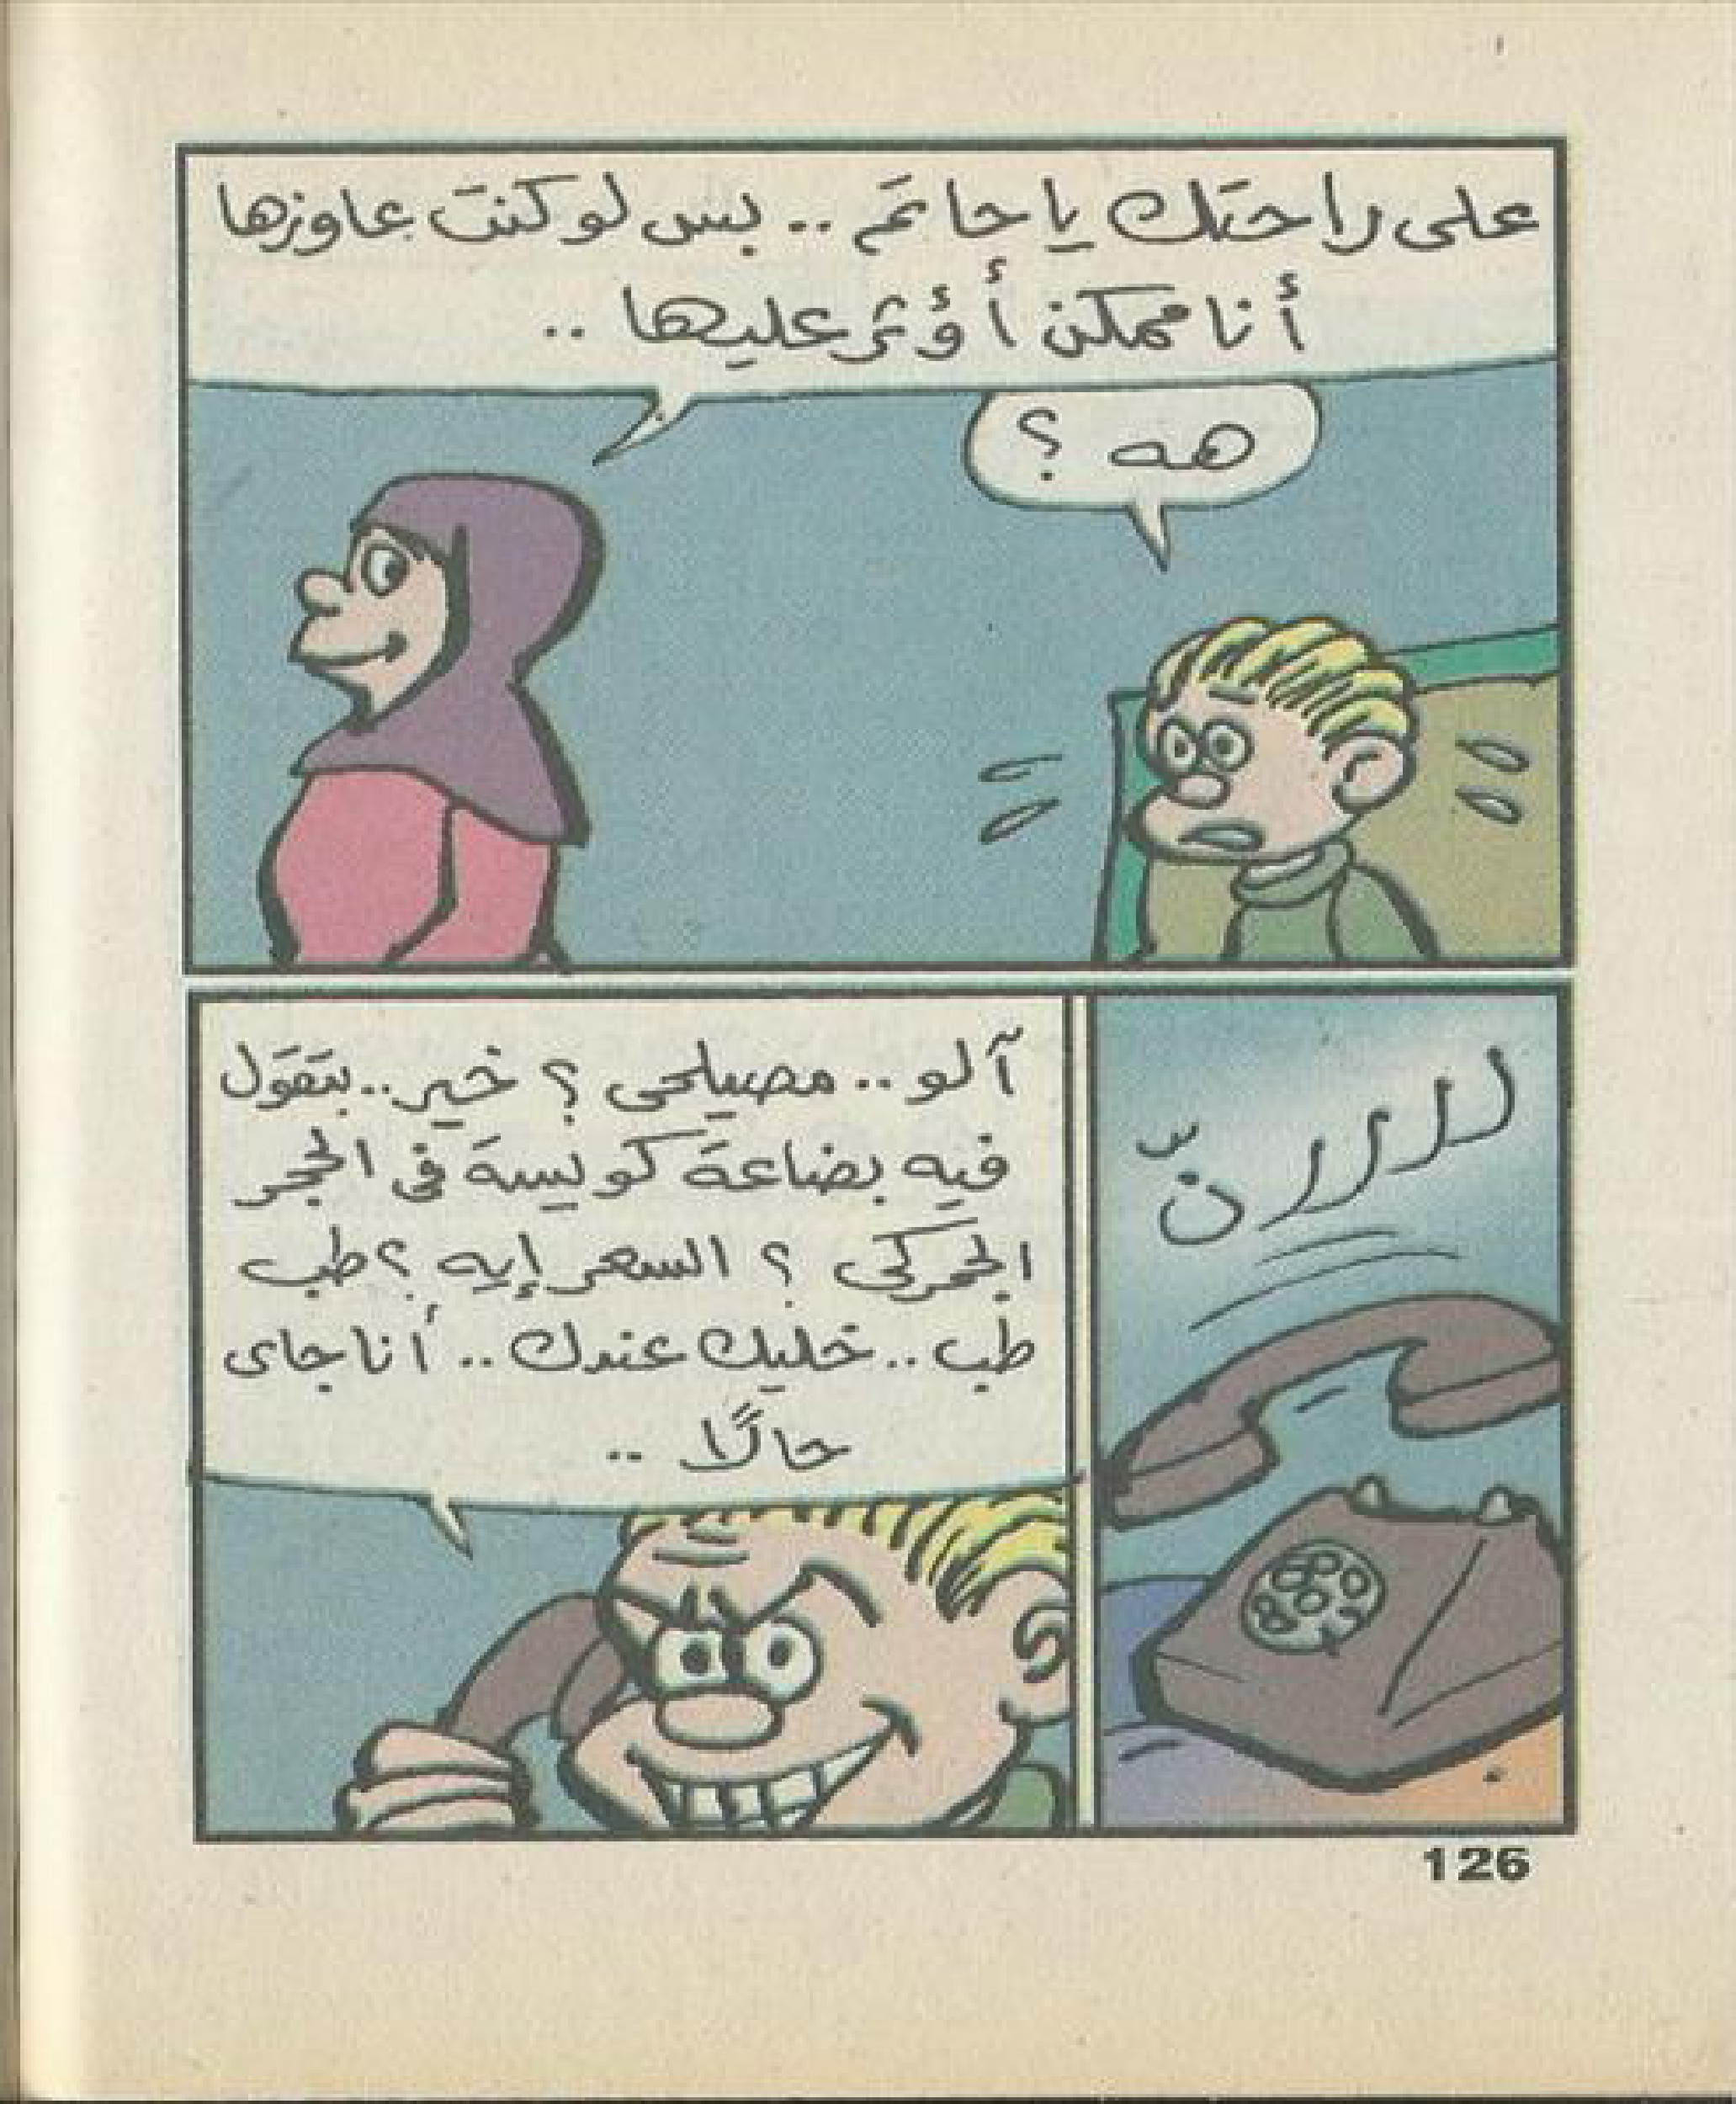 على راحتك يا حاتم .. بس لو كنت عاوزها
أنا ممكن أؤثر عليها ..
هه ؟
لررررنّ
آلو .. مصيلحى ؟ خير .. بتقول
فيه بضاعة كويسة فى الحجر
الجمركى ؟ السعر إيه ؟ طب
طب .. خليك عندك .. أنا جاى
حالًا ..
126